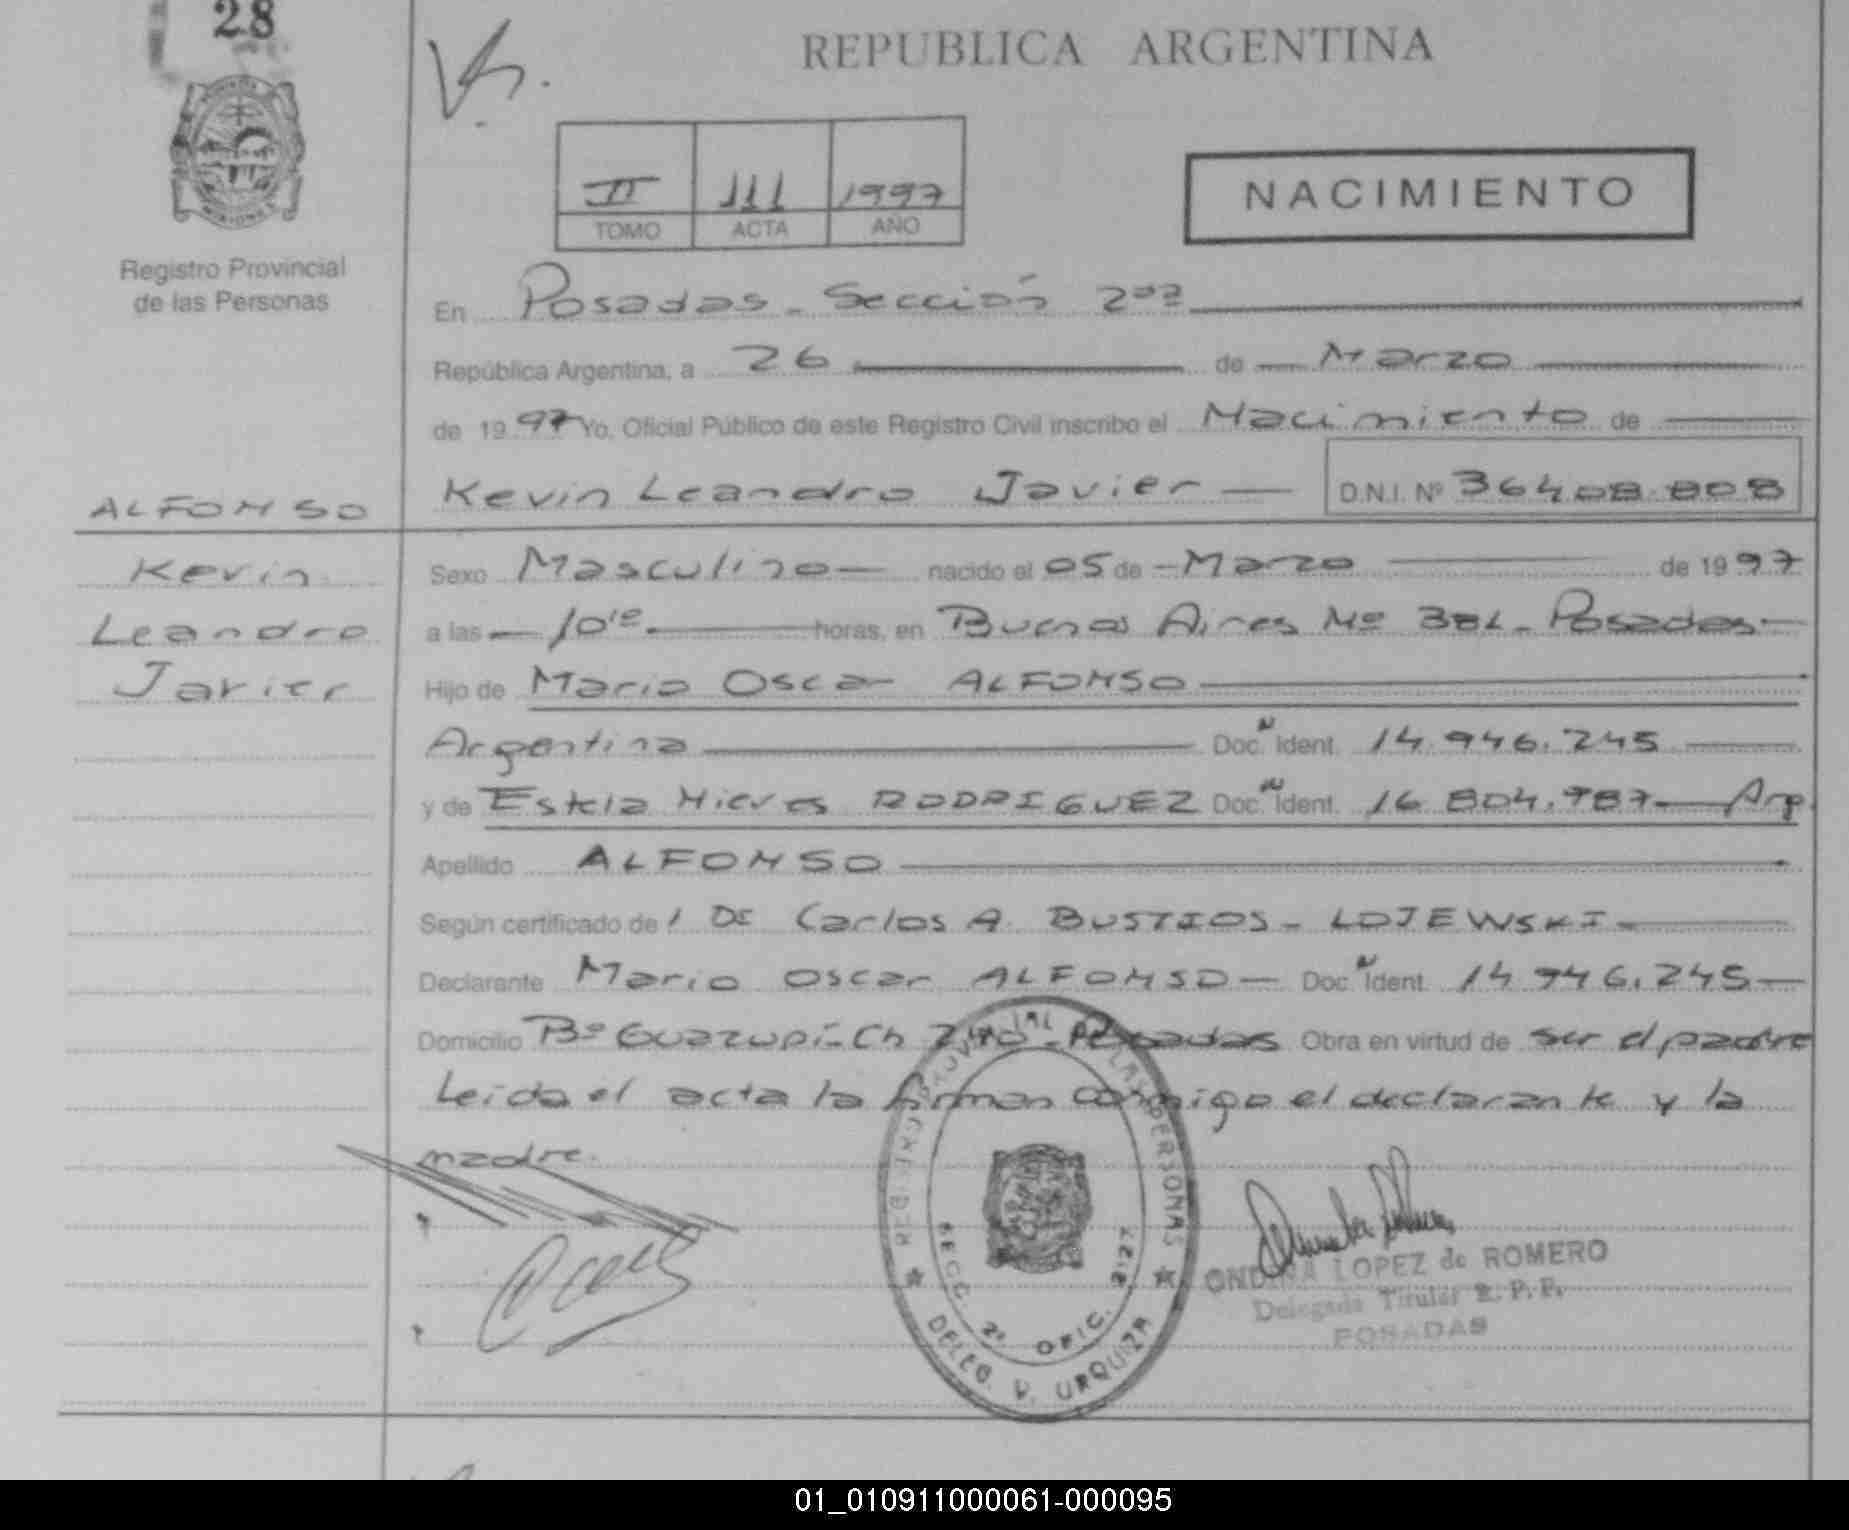 28
REPUBLICA ARGENTINA
II 111 1997
TOMO ACTA AÑO
NACIMIENTO
Registro Provincial
de las Personas
En Posadas - Sección 2da
República Argentina, a 26 de Marzo
de 1997 Yo, Oficial Público de este Registro Civil inscribo el Nacimiento de
ALFONSO
Kevin Leandro Javier D.N.I. Nº 36408.808
Kevin
Leandro
Javier
Sexo Masculino nacido el 05 de Marzo de 1997
a las 10 horas, en Buenos Aires Nº 381 - Posadas
Hijo de Mario Oscar ALFONSO
Argentina Doc. N Ident. 14.946.245
y de Estela Nieves RODRIGUEZ Doc. N Ident. 16.804.787 Arg.
Apellido ALFONSO
Según certificado de Carlos A. BUSTIOS - LOJEWSKI
Declarante Mario Oscar ALFONSO Doc. N Ident. 14.946.245
Domicilio Bº Guazupí - Ch 240 - Posadas Obra en virtud de ser el padre
Leida el acta la firman conmigo el declarante y la
madre.
REGISTRO PROVINCIAL DE LAS PERSONAS
SECC. 2ª OFIC. 2127
DELEG. V. URQUIZA
ONDINA LOPEZ de ROMERO
Delegada Titular R. P. P.
POSADAS
01_010911000061-000095